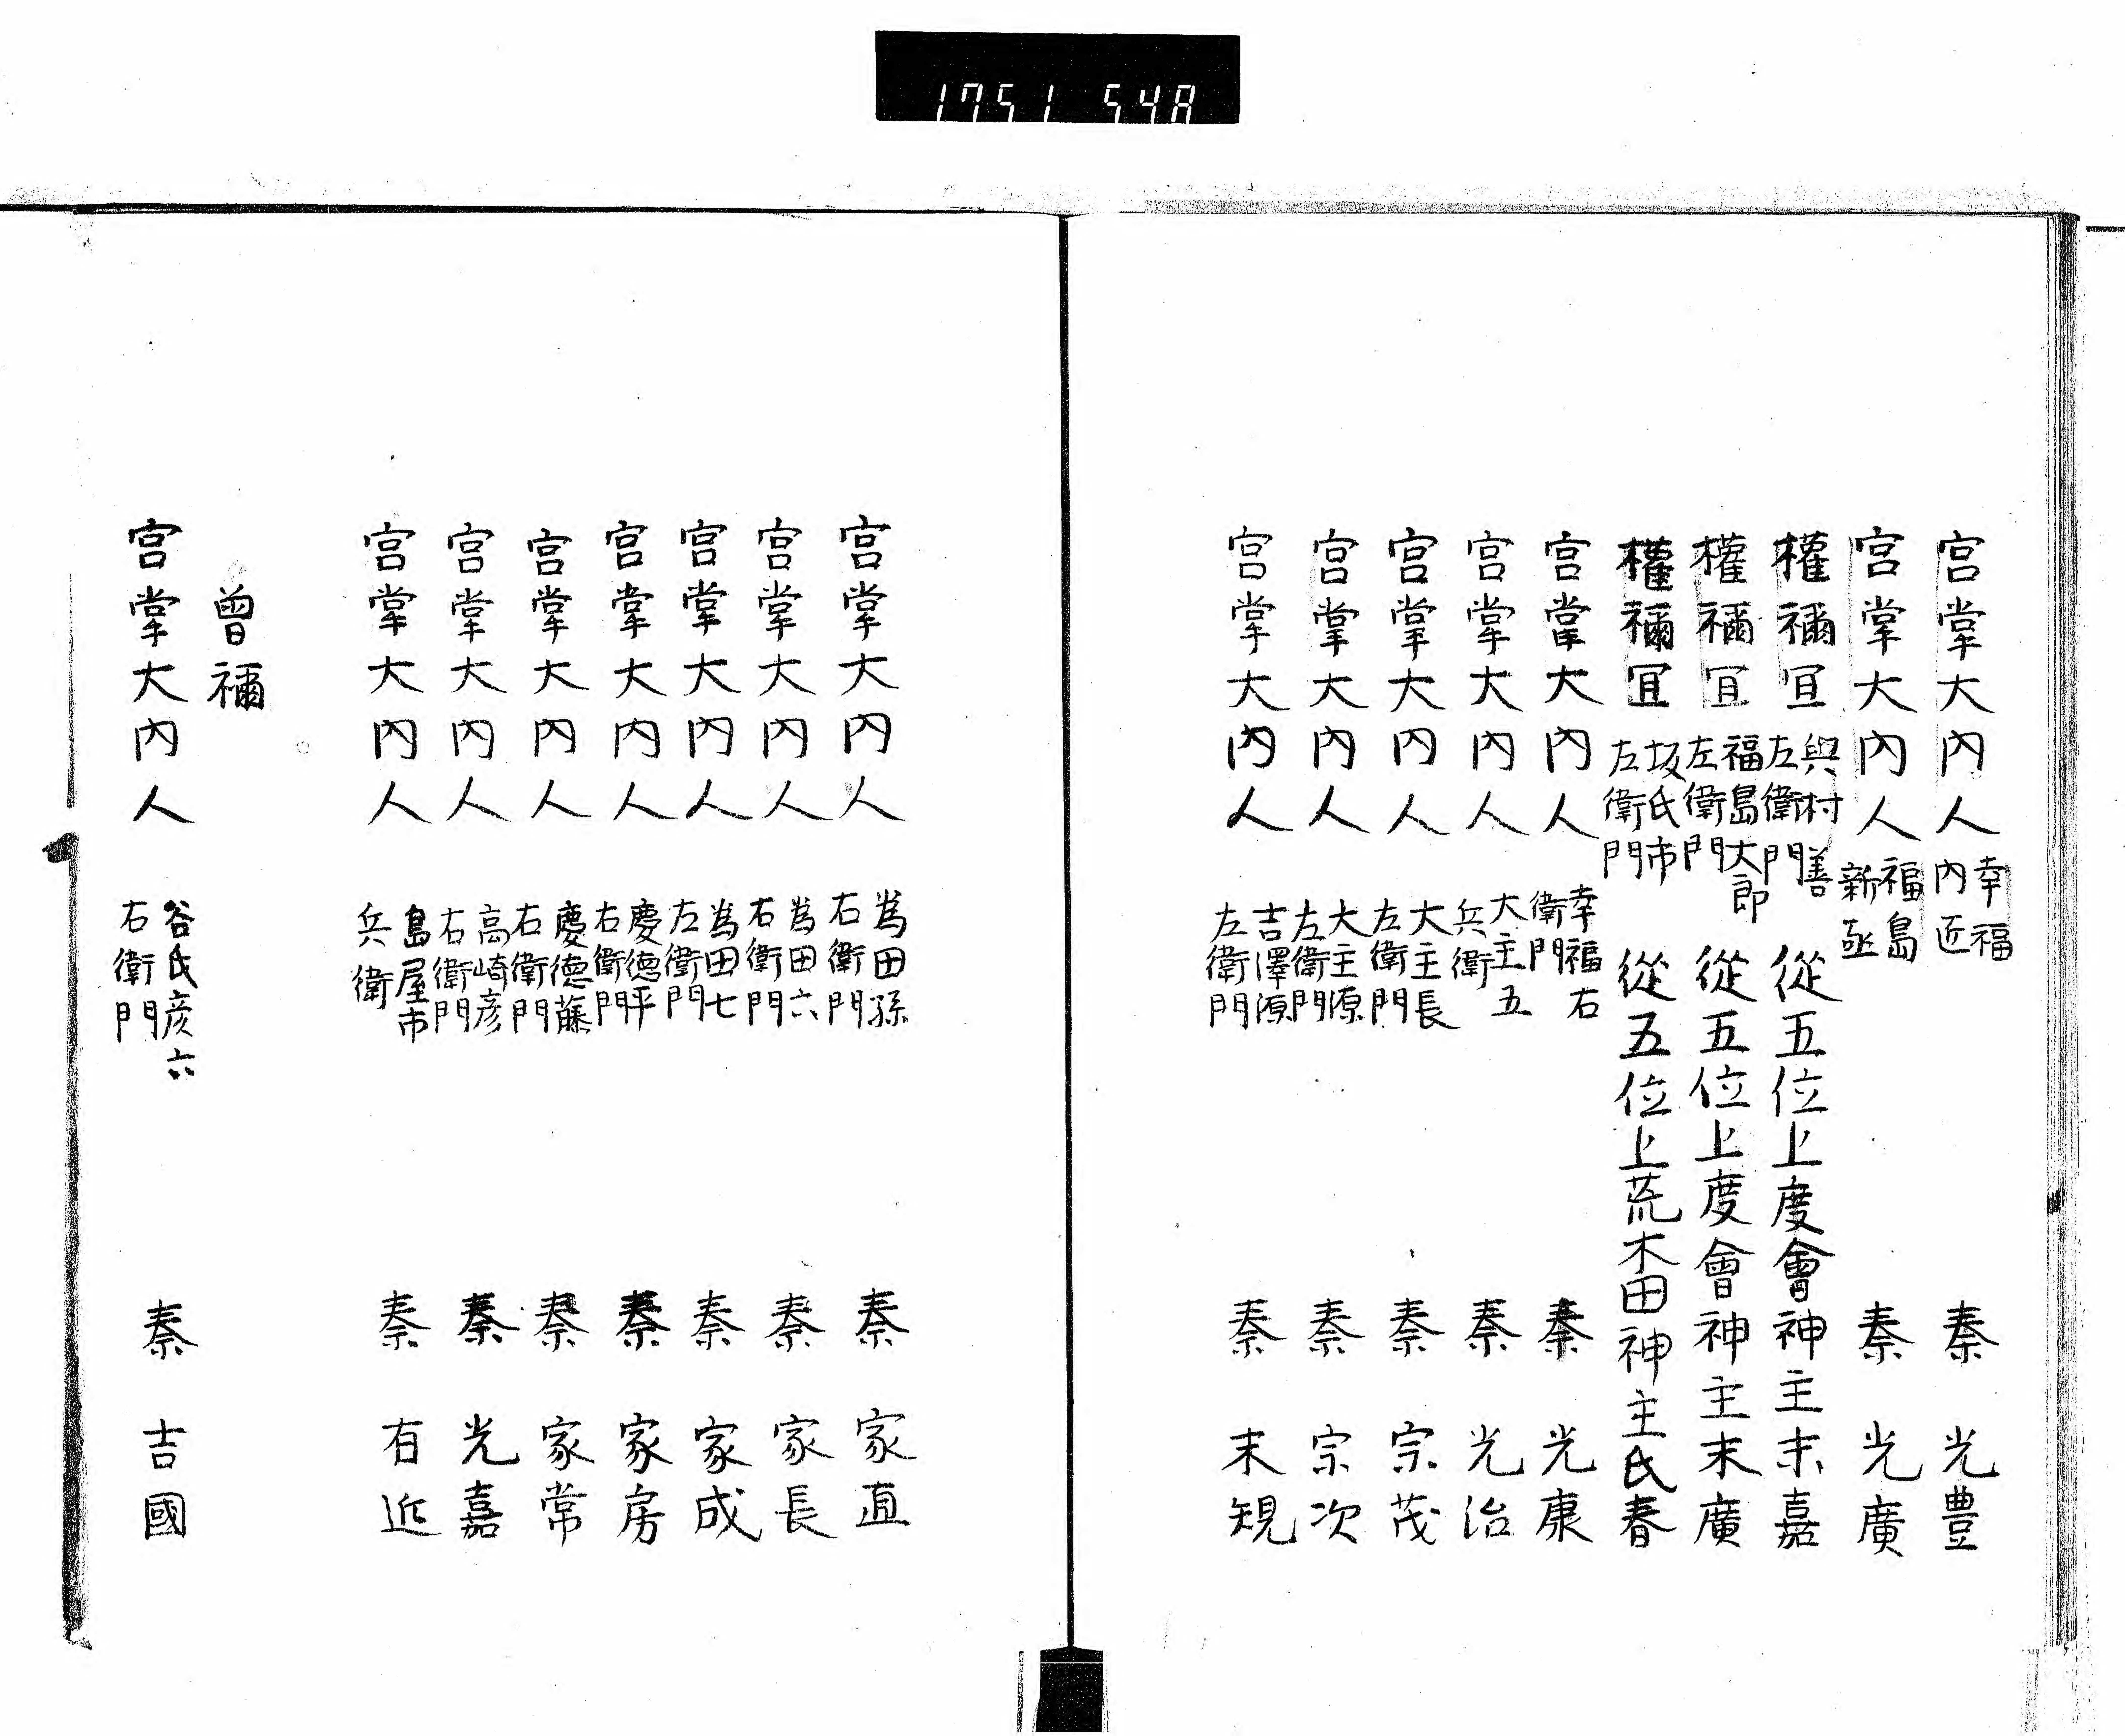 1751 548
宮掌大内人 幸福内匠 秦 光豊
宮掌大内人 福島新亟 秦 光廣
權禰冝 與村善左衛門 從五位上度會神主末嘉
權禰冝 福島大郎左衛門 從五位上度會神主末廣
權禰冝 坂氏市左衛門 從五位上荒木田神主氏春
宮掌大内人 幸福右衛門 秦 光康
宮掌大内人 大主五兵衛 秦 光治
宮掌大内人 大主長左衛門 秦 宗茂
宮掌大内人 大主源左衛門 秦 宗次
宮掌大内人 吉澤源左衛門 秦 末規
宮掌大内人 為田孫右衛門 秦 家直
宮掌大内人 為田六右衛門 秦 家長
宮掌大内人 為田七左衛門 秦 家成
宮掌大内人 慶德平右衛門 秦 家房
宮掌大内人 慶德藤右衛門 秦 家常
宮掌大内人 高崎彦右衛門 秦 光嘉
宮掌大内人 島屋市兵衛 秦 有近
曾禰
宮掌大内人 谷氏彦六右衛門 秦 吉國